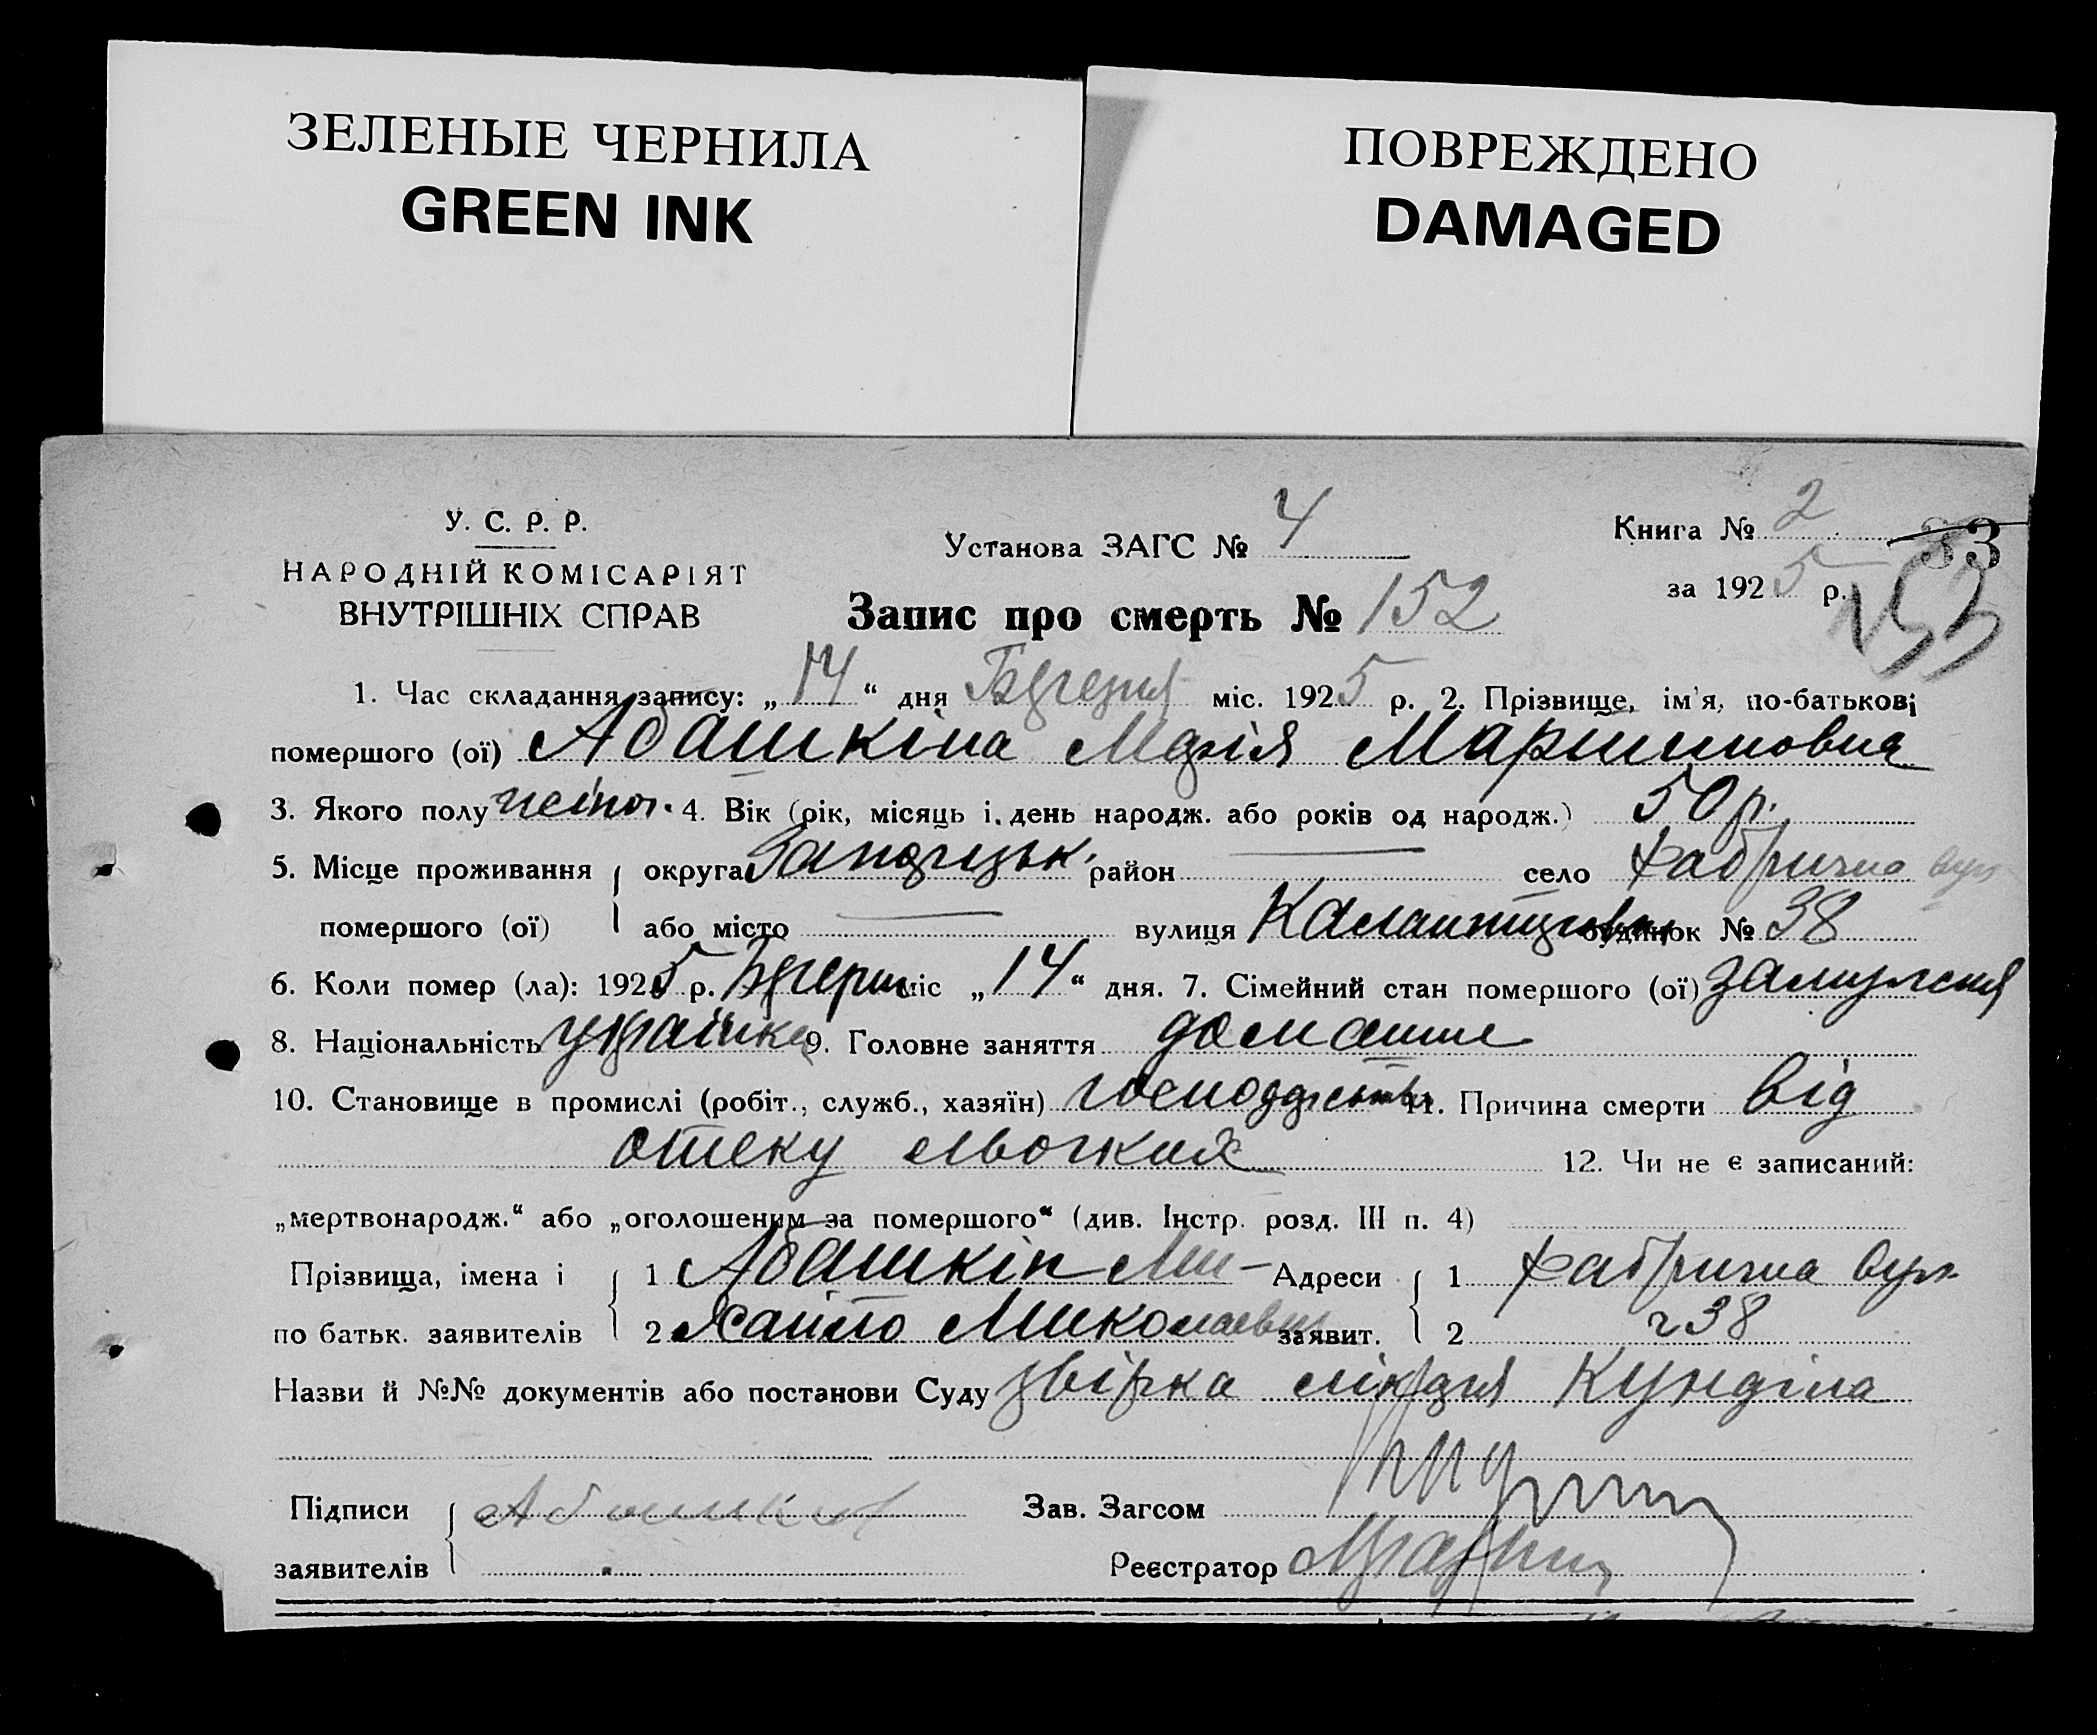 ЗЕЛЕНЫЕ ЧЕРНИЛА
GREEN INK
ПОВРЕЖДЕНО
DAMAGED
У. С. Р. Р.
НАРОДНІЙ КОМІСАРІЯТ
ВНУТРІШНІХ СПРАВ
Установа ЗАГС № 4
Книга № 2
33
за 1925 р.
153
Запис про смерть № 152
1. Час складання запису: „14“ дня міс. 1925 р. 2. Прізвище, ім'я, по-батькові
помершого (ої) Абашкіна Марія Мартиновна
3. Якого полу жіноч. 4. Вік (рік, місяць і день народж. або років од народж.) 50 р.
5. Місце проживання округа Запоріжськ. район — село Фабрична вул
помершого (ої) або місто — вулиця будинок № 38
6. Коли помер (ла): 1925 р. міс „14“ дня. 7. Сімейний стан помершого (ої) замужня
8. Національність українка 9. Головне заняття домашне
10. Становище в промислі (робіт., служб., хазяїн) господарство 11. Причина смерти від
отеку льогких 12. Чи не є записаний:
„мертвонародж.“ або „оголошеним за помершого“ (див. Інстр. розд. III п. 4)
Прізвища, імена і 1 Абашкін Ми- Адреси 1 Фабрична вул.
по батьк. заявителів 2 хайло Миколаевич заявит. 2 38
Назви й №№ документів або постанови Суду лікаря
Підписи Абашкин Зав. Загсом
заявителів Реєстратор